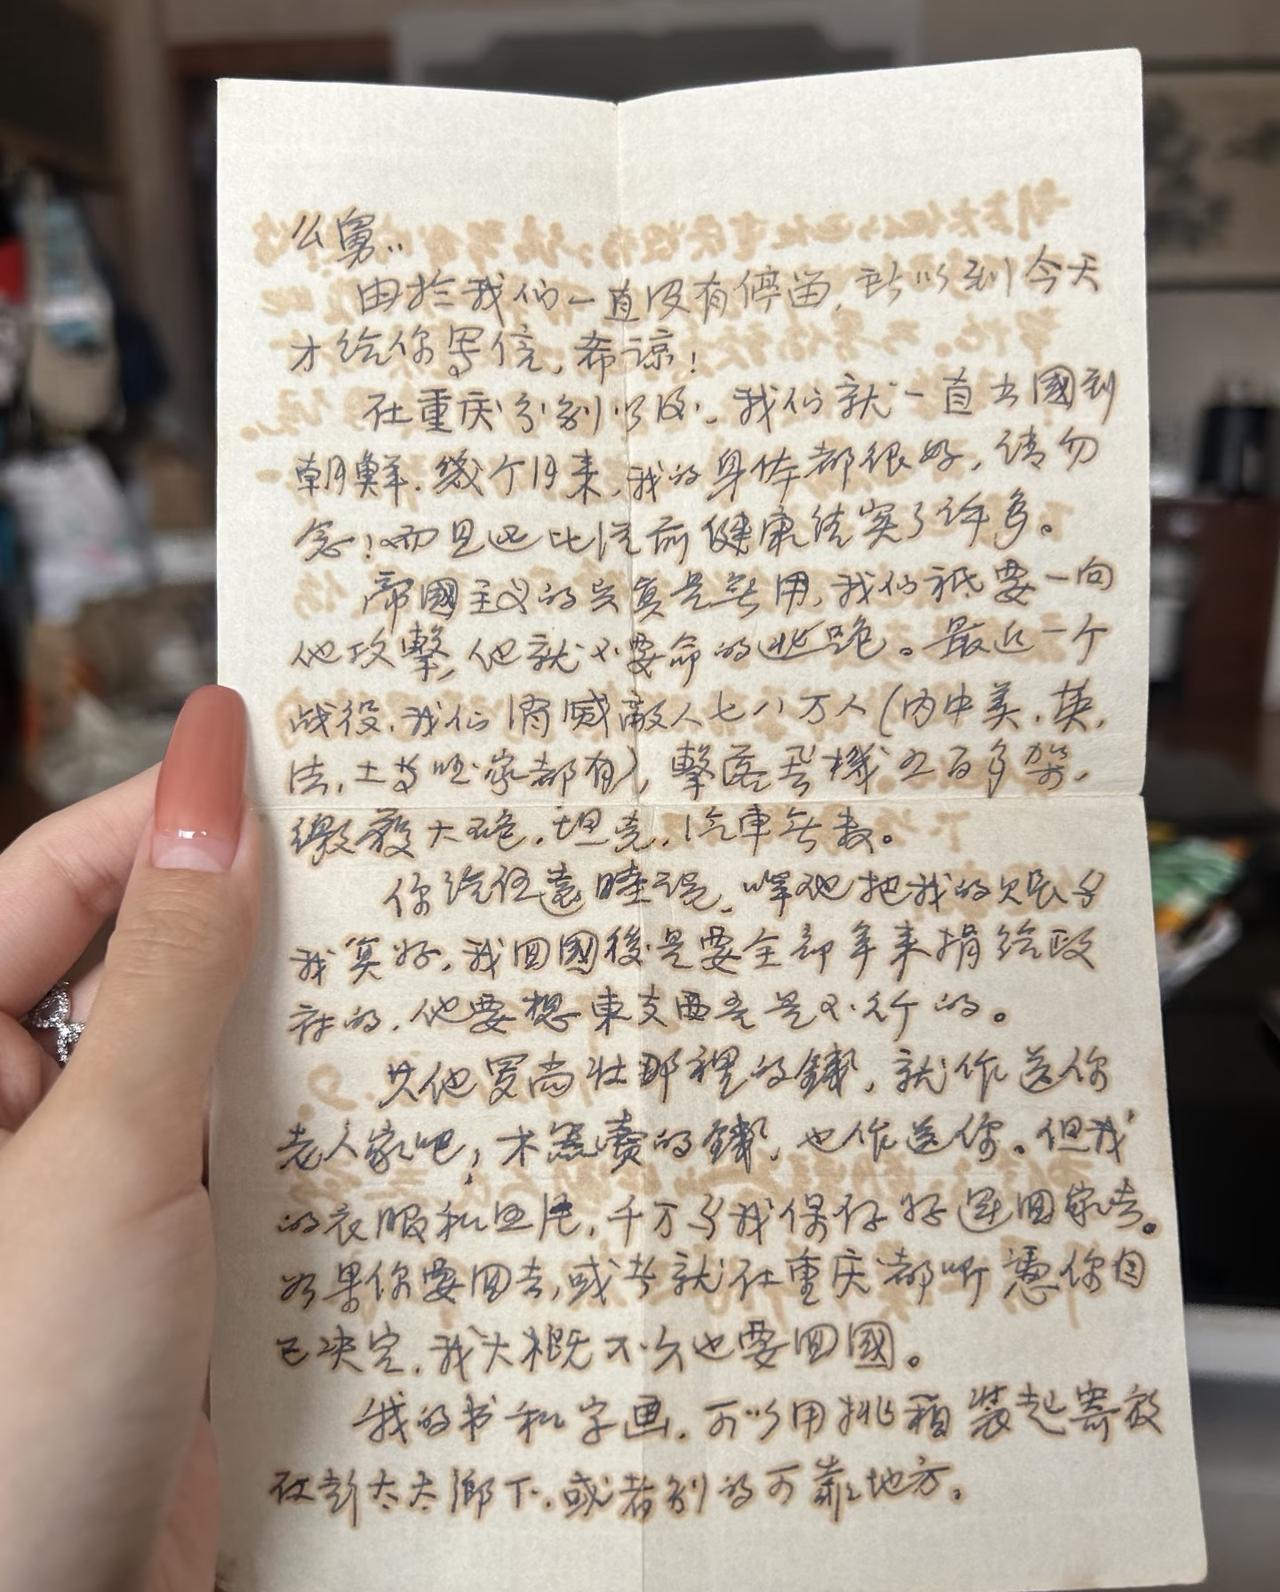 么舅：
由於我们一直没有停留，所以到今天
才给你写信，希谅！
在重庆分别以后，我们就一直出國到
朝鲜，幾个月来，我的身体都很好，请勿
念！而且还比従前健康结实了许多。
帝國主义的兵真是無用，我们祇要一向
他攻擊，他就不要命的逃跑。最近一个
战役，我们消滅敵人七八万人（内中美，英，
法，土等国家都有），擊落飛機五百多架，
缴获大砲，坦克，汽車無数。
你给任遠 说，嘱他把我的欠账
我 好，我回國後是要全部 来捐给政
府的，他要想東支西 是不行的。
其他 尚壮那裡的錢，就作送你
老人家吧，木 的錢，也作送你。但我
的衣服和 ，千万 我保存好 回家去。
如果你要回去，或者就在重庆都听憑你自
己决定，我大概不久也要回國。
我的书和字画，可以用挑箱装起寄放
在彭太太鄉下，或者别的可靠地方。